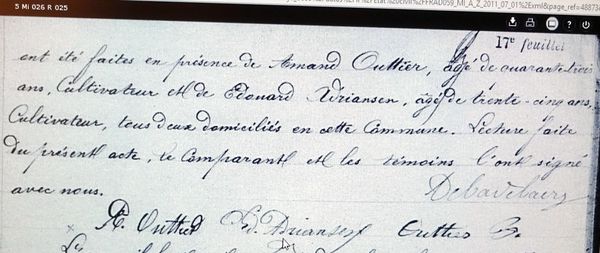 5 Mi 026 R 025
FRAD059_MI_A_Z_2011_07_01%2Exml&page_ref=48873
17e feuillet
ont été faites en présence de Amand Outtier, âgé de quarante trois
ans, Cultivateur et de Edouard Adriansen, âgé de trente-cinq ans,
Cultivateur, tous deux domiciliés en cette Commune. Lecture faite
du présent acte, le Comparant et les témoins l'ont signé
avec nous.
A. Outtier Ed. Adriansen Outtier